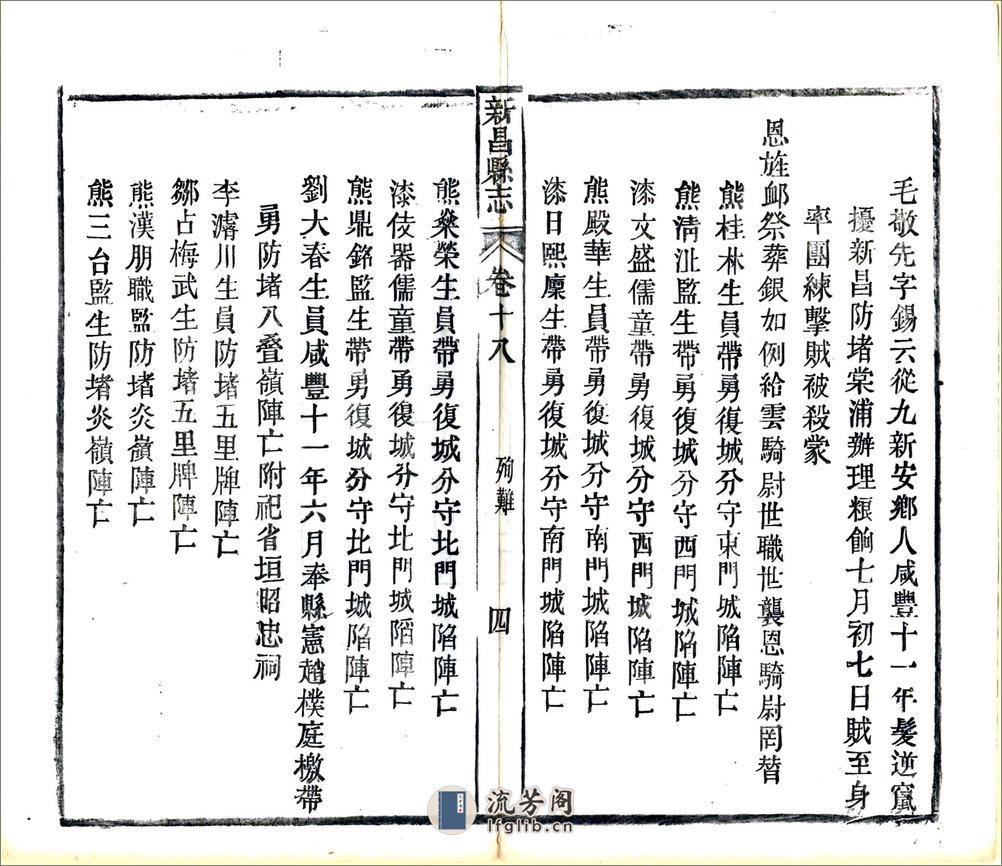 毛敬先字錫六從九新安鄉人咸豐十一年髮逆竄
擾新昌防堵棠浦辦理粮餉七月初七日賊至身
率團練擊賊被殺蒙
恩旌卹祭葬銀如例給雲騎尉世職世襲恩騎尉罔替
熊桂林生員帶勇復城分守東門城陷陣亡
熊清沚監生帶勇復城分守西門城陷陣亡
漆文盛儒童帶勇復城分守西門城陷陣亡
熊殿華生員帶勇復城分守南門城陷陣亡
漆日熙廩生帶勇復城分守南門城陷陣亡
新昌縣志 卷十八 殉難 四
熊燊榮生員帶勇復城分守北門城陷陣亡
漆伎器儒童帶勇復城分守北門城陷陣亡
熊鼎銘監生帶勇復城分守北門城陷陣亡
劉大春生員咸豐十一年六月奉縣憲趙樸庭檄帶
勇防堵八叠嶺陣亡附祀省垣昭忠祠
李濬川生員防堵五里牌陣亡
鄒占梅武生防堵五里牌陣亡
熊漢朋職監防堵炎嶺陣亡
熊三台監生防堵炎嶺陣亡
流芳阁
lfglib.cn